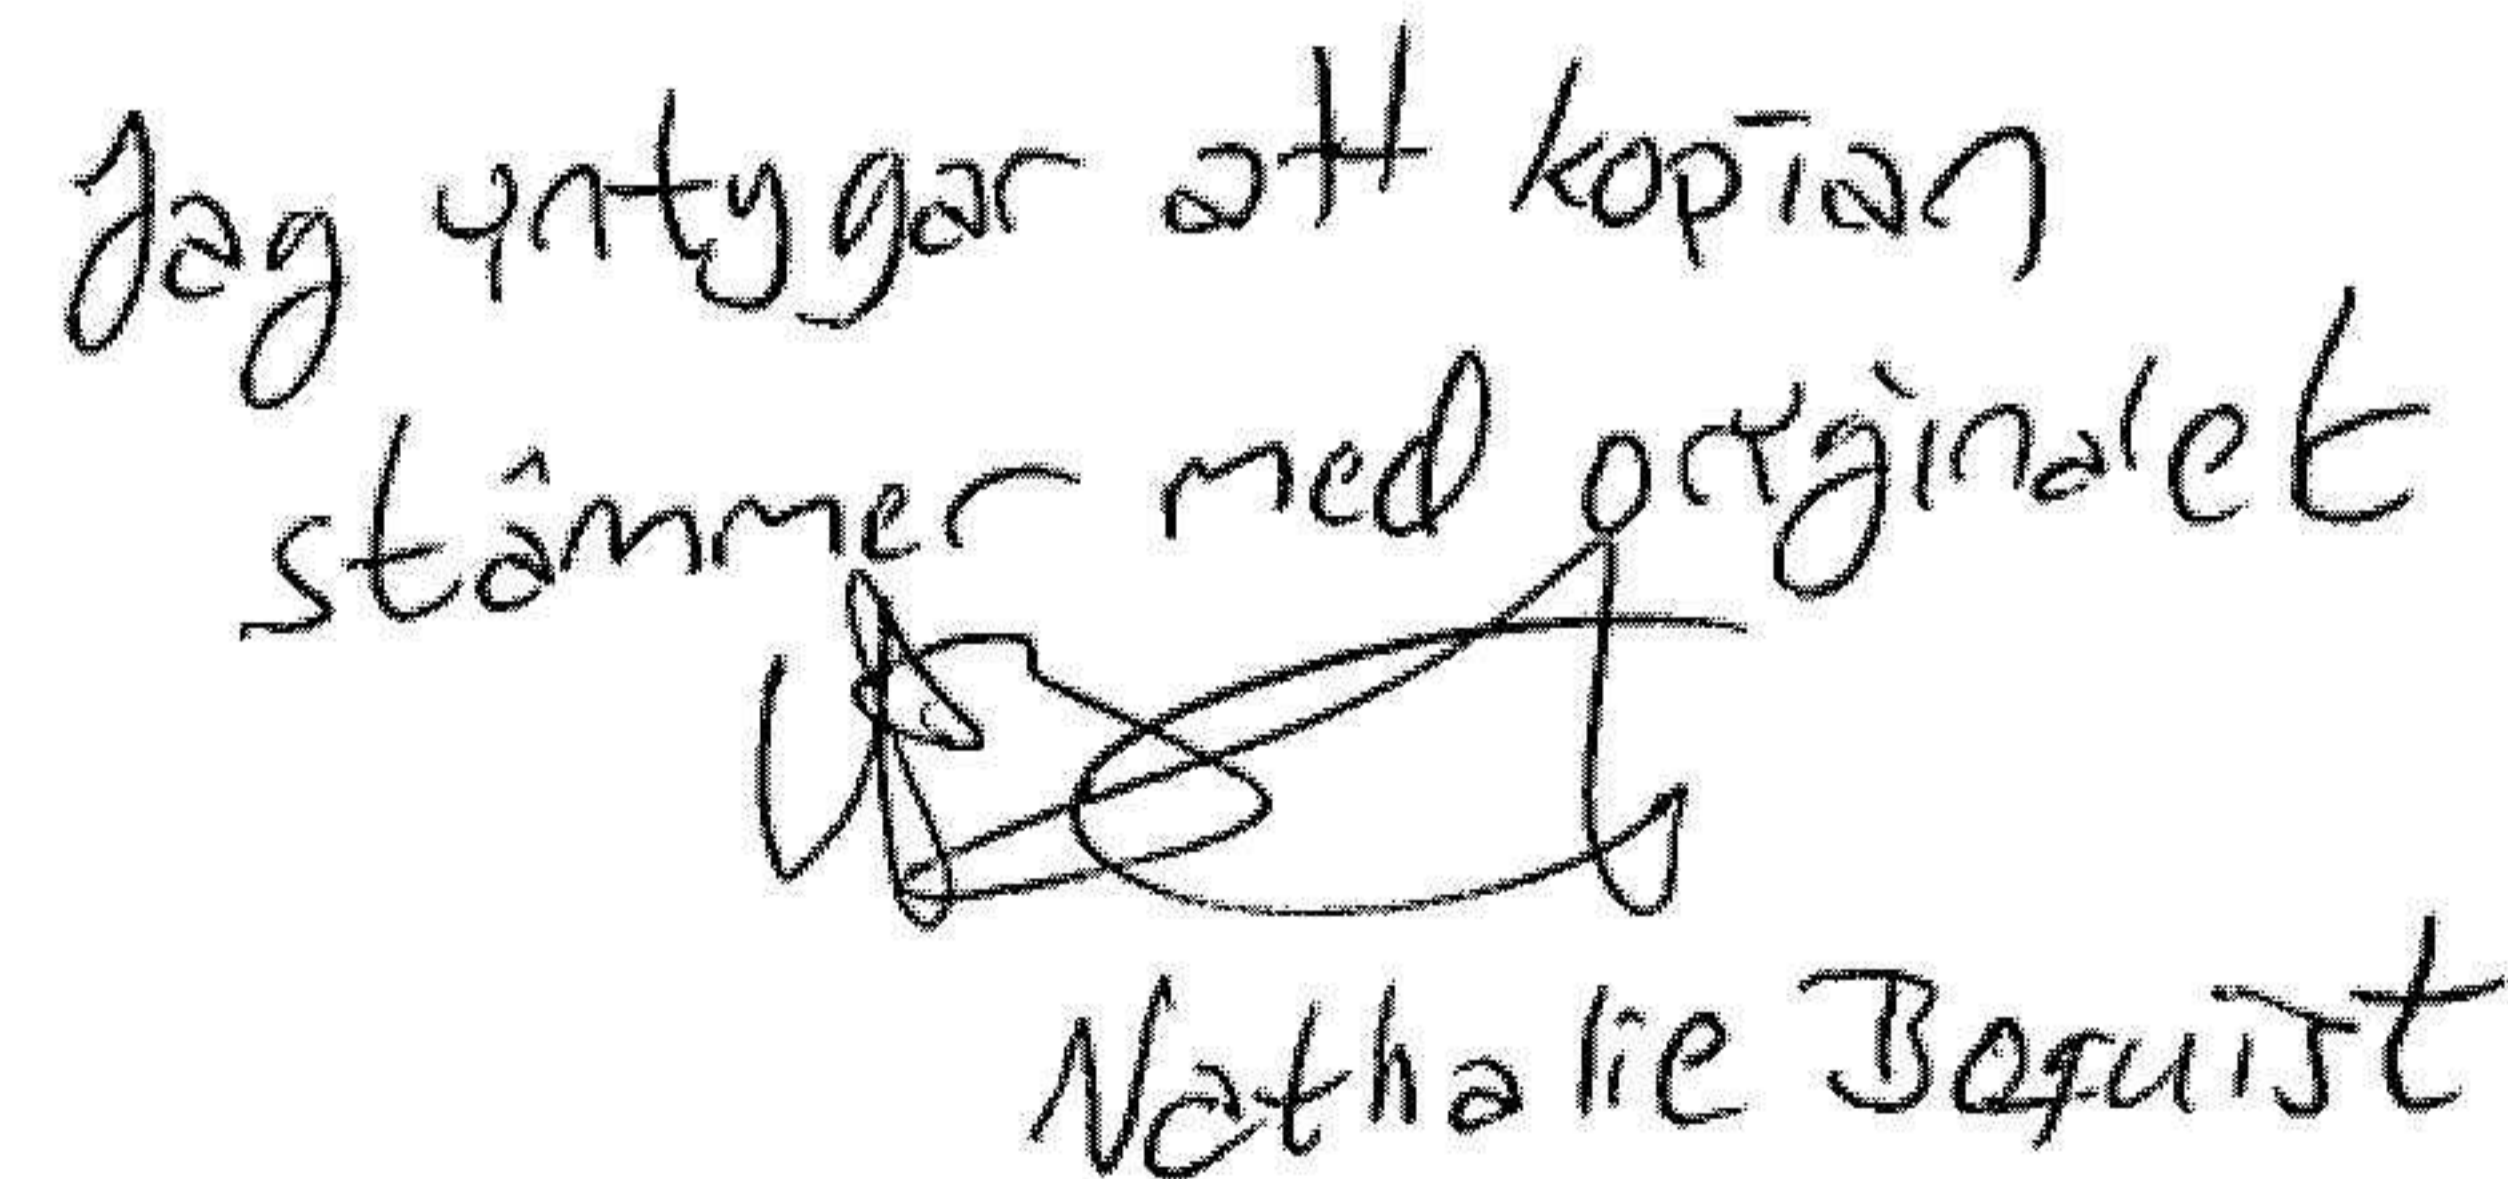 Jag yntygar att kopian
stämmer med orginalet
Nathalie Boquist